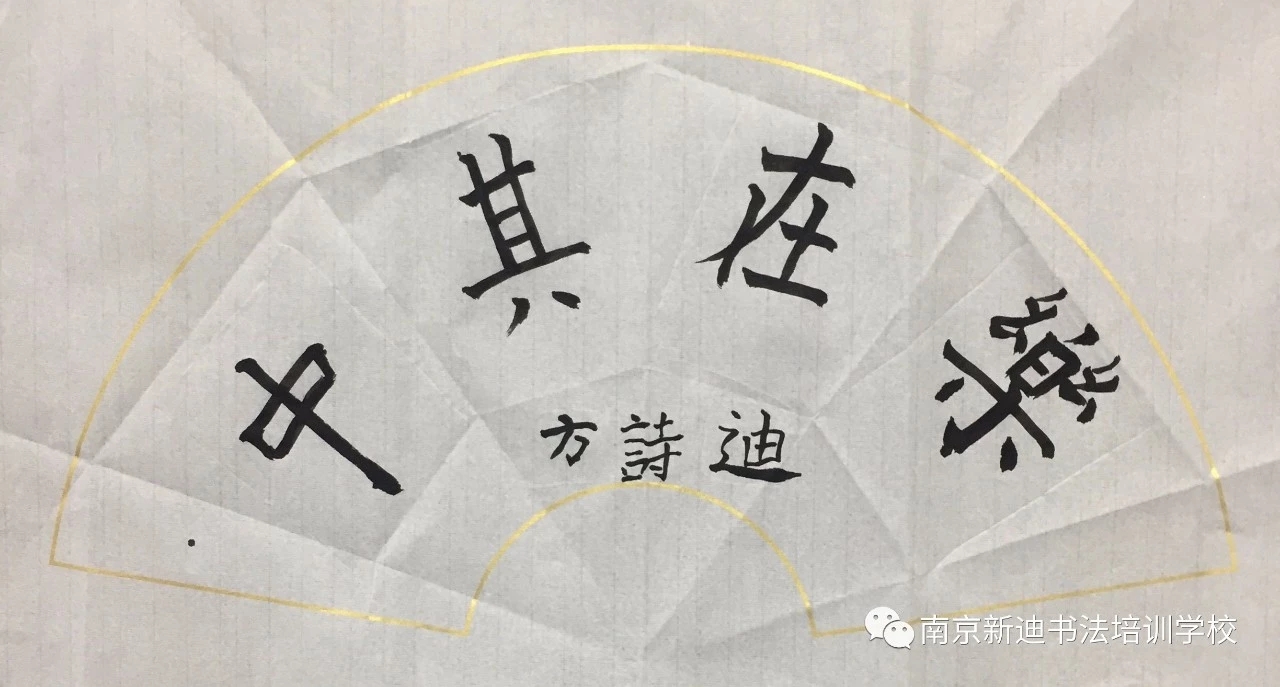 樂在其中
方詩迪
南京新迪书法培训学校